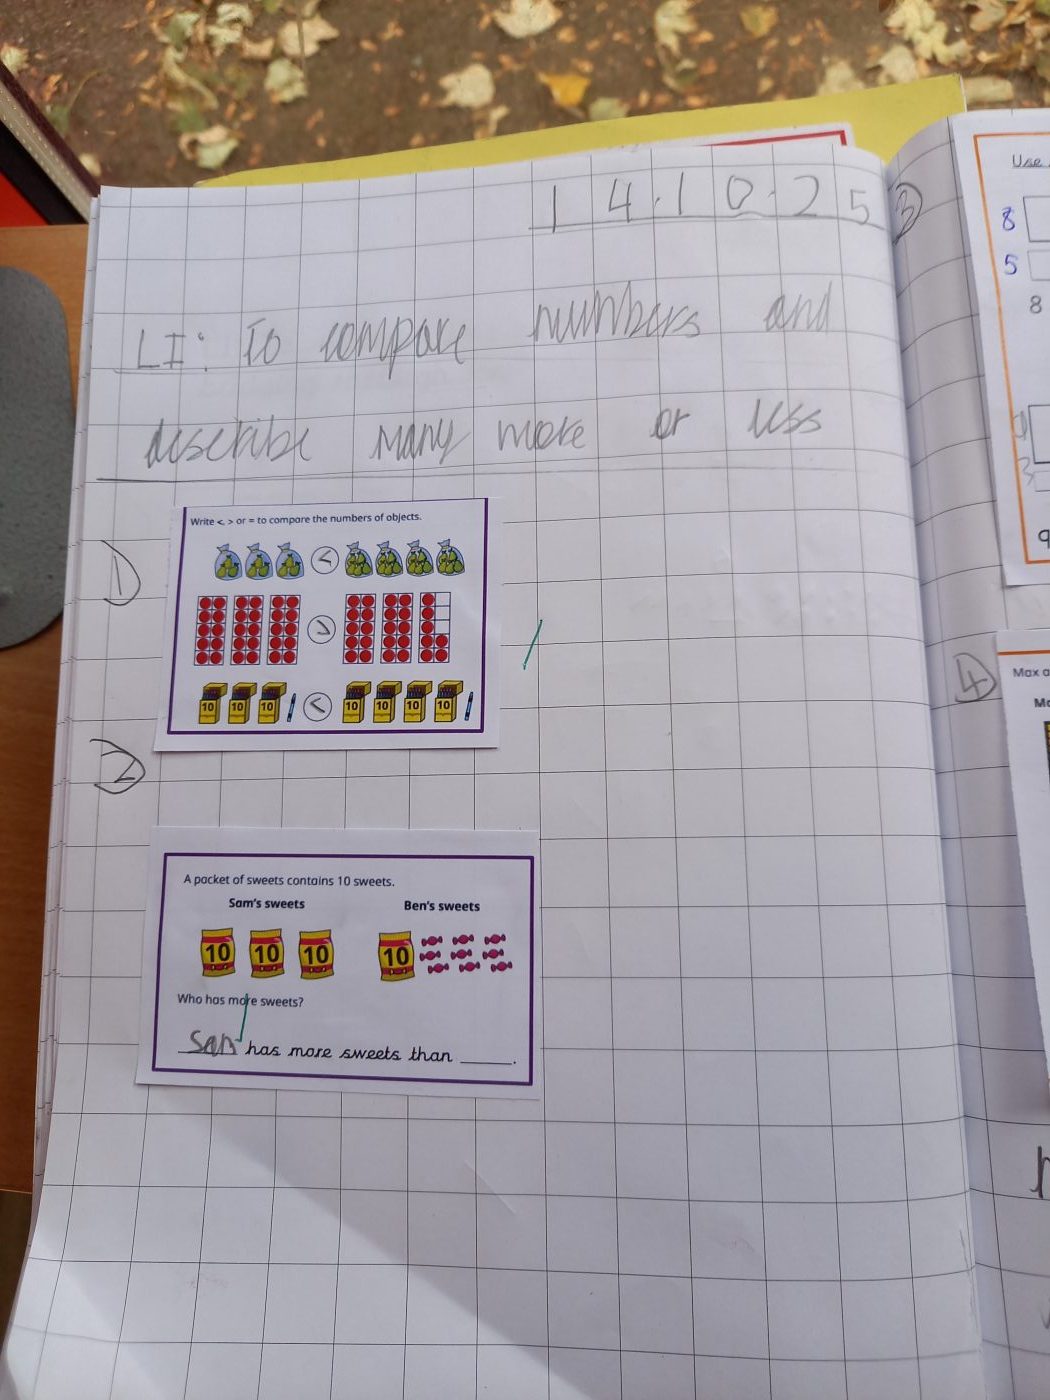 14.10.25
LI: To compare numbers and
describe many more or less
1
Write <, > or = to compare the numbers of objects.
<
>
10 10 10 < 10 10 10 10
2
A packet of sweets contains 10 sweets.
Sam's sweets Ben's sweets
10 10 10 10
Who has more sweets?
Sam has more sweets than ____.
3
Use
8
5
8
9
4
Max a